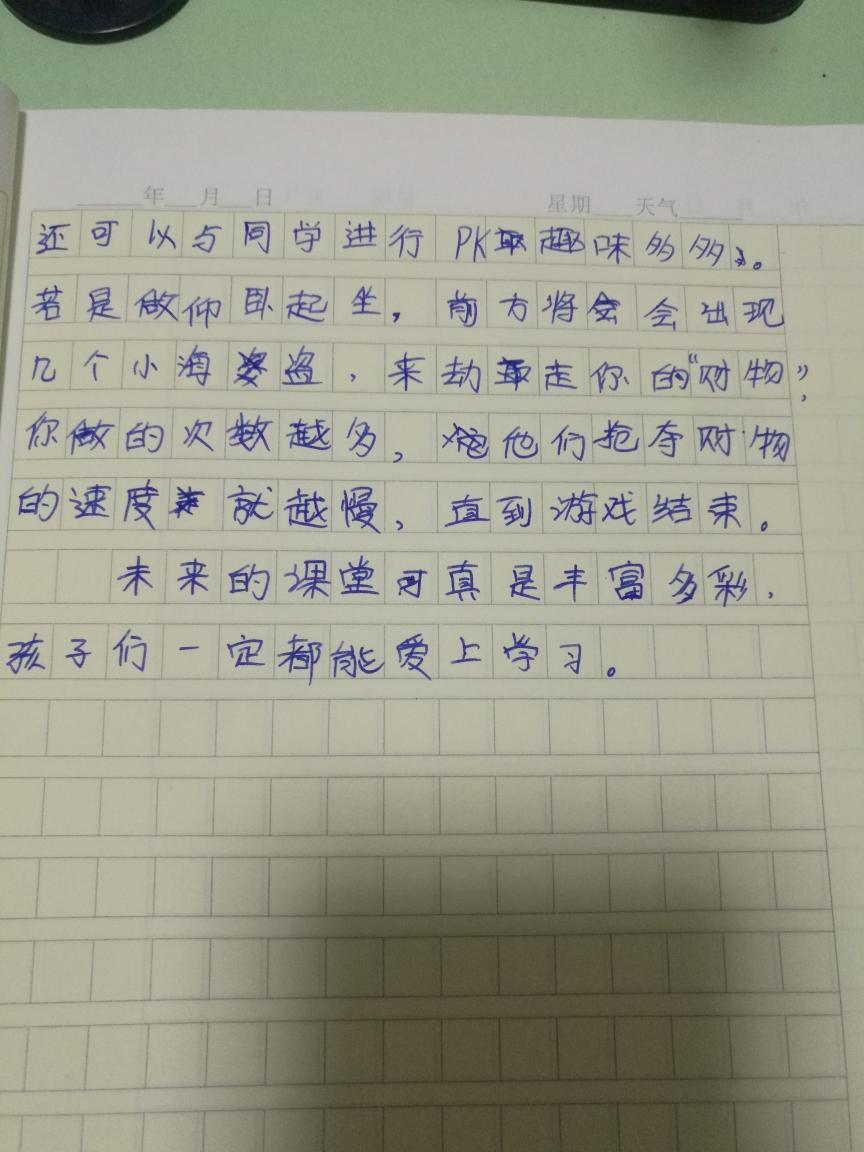 年 月 日 星期 天气
还可以与同学进行PK趣味多多。
若是做仰卧起坐，前方将会出现
几个小海盗，来劫走你的“财物”，
你做的次数越多，他们抢夺财物
的速度就越慢，直到游戏结束。
未来的课堂可真是丰富多彩，
孩子们一定都能爱上学习。